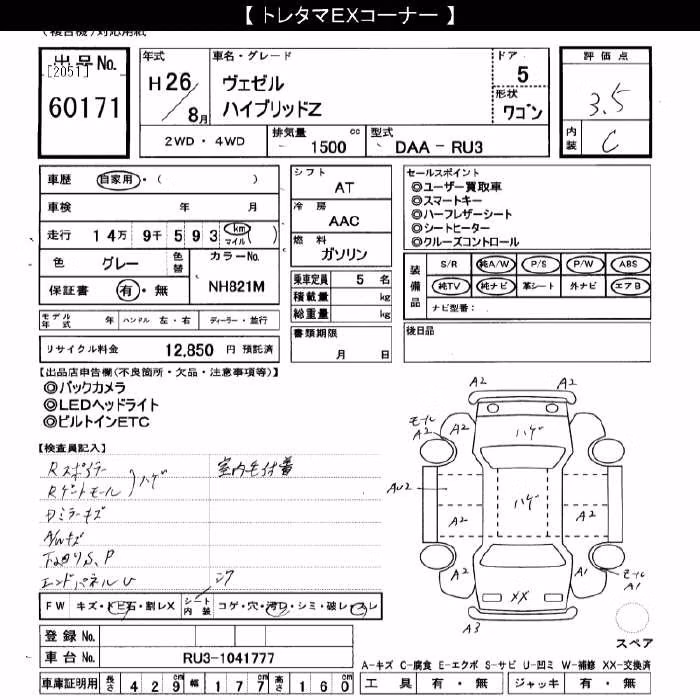 【 トレタマEXコーナー 】
(複合機)対応用紙
出品No.
[2051]
60171
年式
H 26 / 8月
車名・グレード
ヴェゼル
ハイブリッドZ
ドア
5
形状
ワゴン
評価点
3.5
内装
C
2WD ・ 4WD
排気量 cc
1500
型式
DAA - RU3
車歴 自家用・( )
車検 年 月
走行 14万 9千 593 (km マイル)
色 グレー 色替 カラーNo.
保証書 有・無 NH821M
シフト
AT
冷房
AAC
燃料
ガソリン
乗車定員 5 名
積載量 kg
総重量 kg
書類期限
月 日
セールスポイント
◎ユーザー買取車
◎スマートキー
◎ハーフレザーシート
◎シートヒーター
◎クルーズコントロール
装備品
S/R 純A/W P/S P/W ABS
純TV 純ナビ 革シート 外ナビ エアB
ナビ型番：
後日品
モデル年式 年 ハンドル 左・右 ディーラー・並行
リサイクル料金 12,850 円 預託済
【出品店申告欄(不良箇所・欠品・注意事項等)】
◎バックカメラ
◎LEDヘッドライト
◎ビルトインETC
【検査員記入】
Rスポイラー
Rゲートモール
ハゲ
室内毛付着
Dミラーキズ
A/Wキズ
下廻りS、P
エンドパネルU
コゲ
FW キズ・トビ石・割レX シート内装 コゲ・穴・汚レ・シミ・破レ・スレ
登録No.
車台No. RU3-1041777
車庫証明用 長さ 429 幅 177 高さ 160
A2 A2
モール A2
A2 ハゲ A2
AU2
A2 ハゲ A2
A2 A1
モール A1
XX
A3
スペア
A-キズ C-腐食 E-エクボ S-サビ U-凹ミ W-補修 XX-交換済
工具 有・無 ジャッキ 有・無